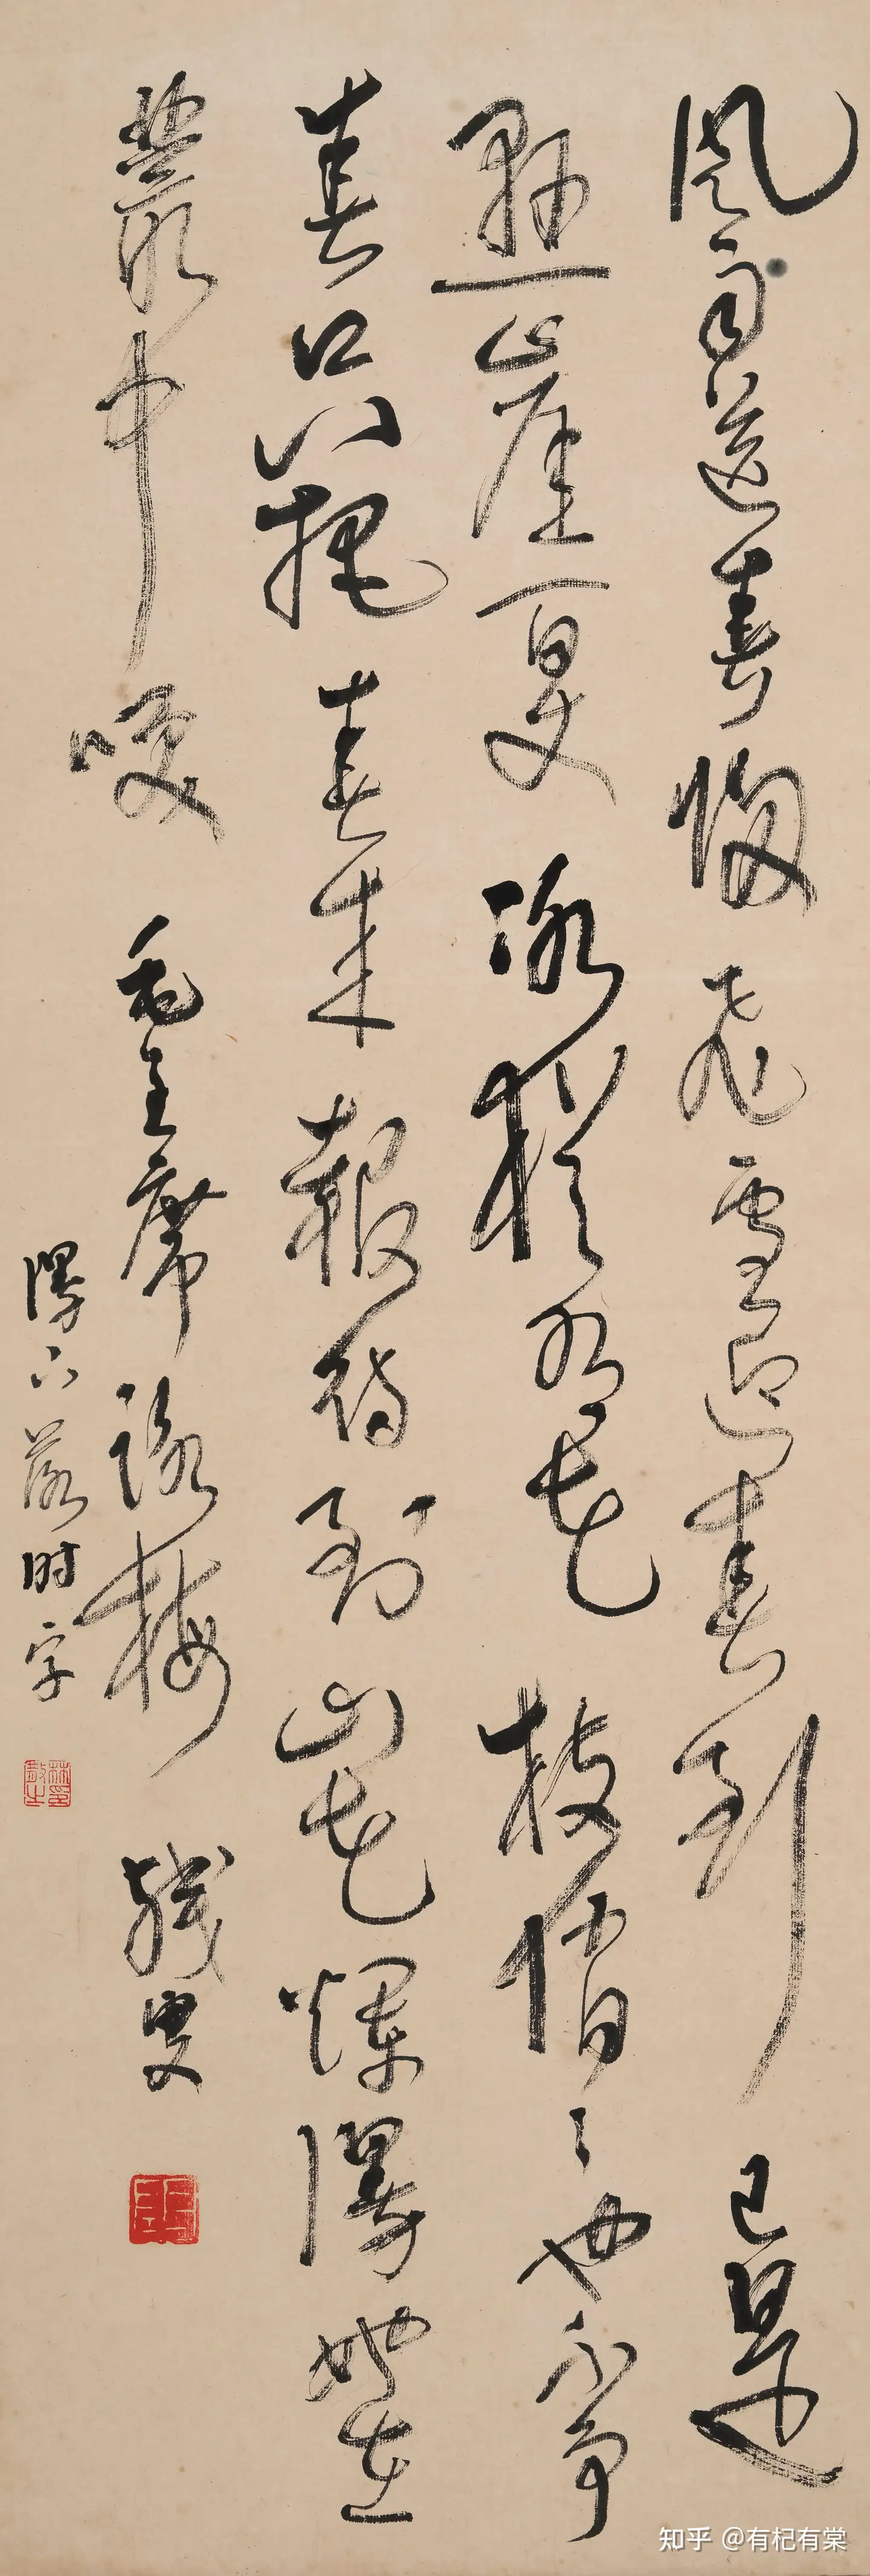 風雨送春歸飛雪迎春到已是
懸崖百丈冰猶有花枝俏〻也不爭
春只把春來報待到山花爛漫她在
叢中咲 毛主席詠梅 散叟
漫下落时字
林散之印
知乎 @有杞有棠